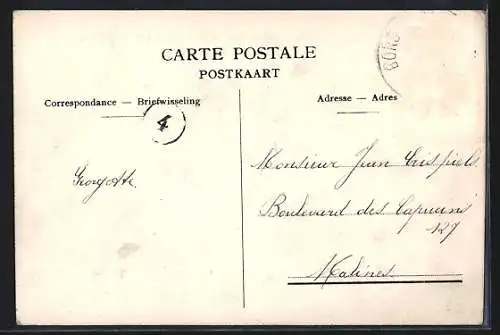 CARTE POSTALE
POSTKAART
Correspondance — Briefwisseling
Adresse — Adres
4
Georgette.
Monsieur Jean
Boulevard des Capucins
127
Malines